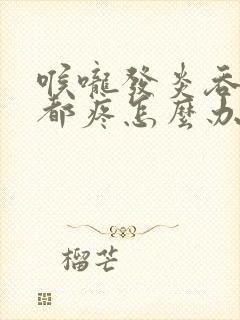 喉嚨發炎吞
都疼怎麼办
榴芒